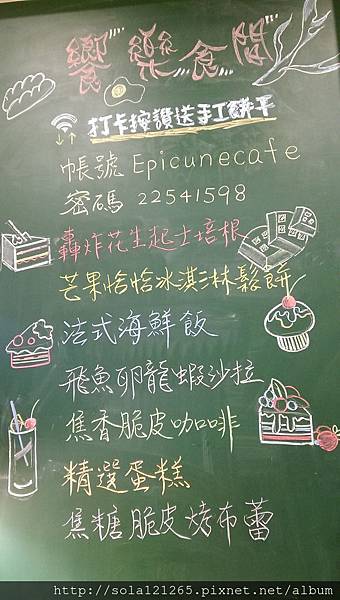 饗樂食間
打卡按讚送手工餅干
帳號 Epicunecafe
密碼 22541598
轟炸花生起士培根
芒果恰恰冰淇淋鬆餅
法式海鮮飯
飛魚卵龍蝦沙拉
焦香脆皮咖啡
精選蛋糕
焦糖脆皮烤布蕾
http://sola121265.pixnet.net/album